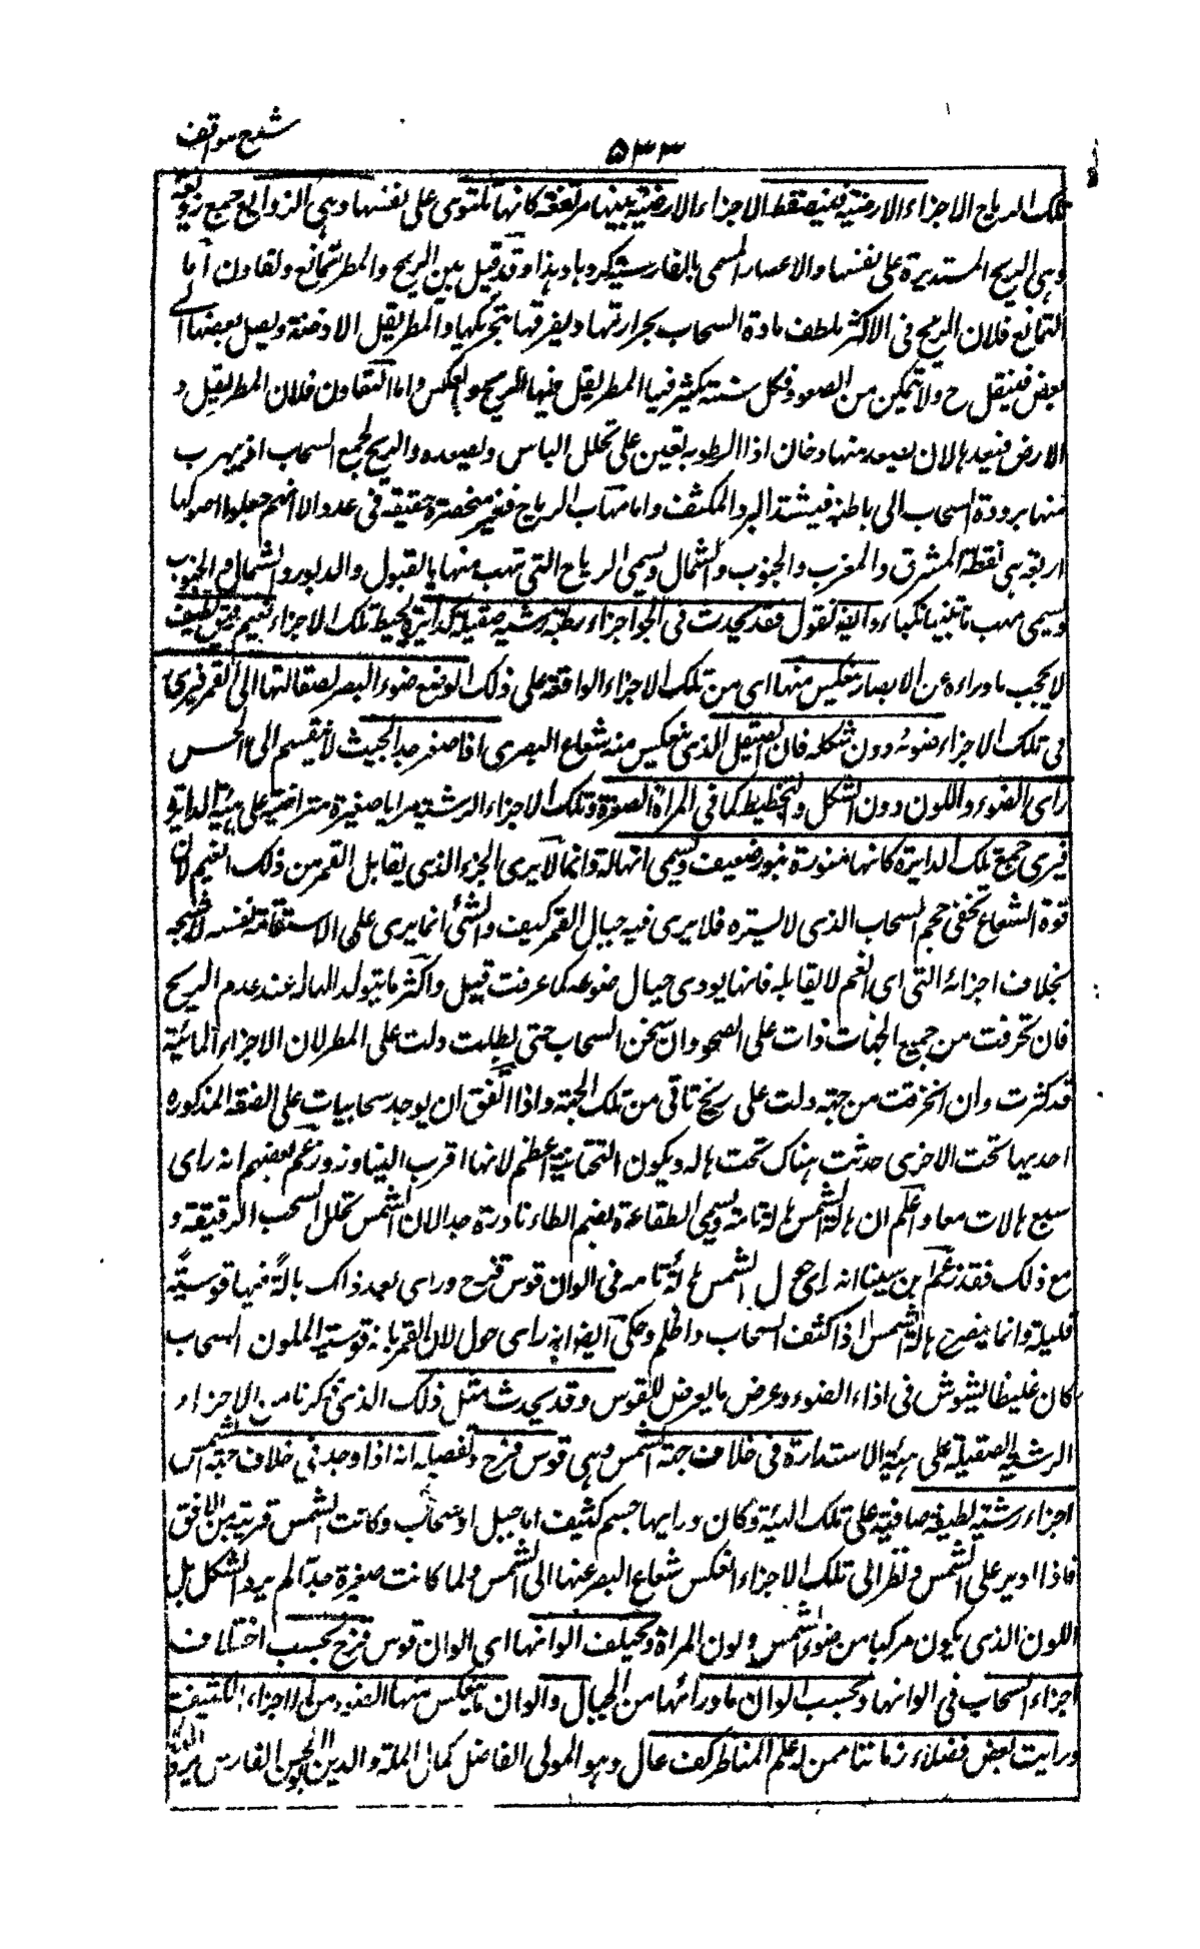 شرح مواقف
٥٣٣
تلك الرياح الاجزاء الارضية فينضغط الاجزاء الارضية بينها مرتفعة كانها تلتوى على نفسها وهى الزوابع جمع زوبعة
وهى الريح المستديرة على نفسها والاعصار المسمى بالفارسية كردباد هذا وقد قيل بين الريح والمطر تمانع وتعاون اما
التمانع فلان الريح فى الاكثر يلطف مادة السحاب بحرارتها ويفرقها بتحريكها والمطر يبل الادخنة ويصل بعضها الى
بعض فيثقل ح ولا يتمكن من الصعود فكل سنة تكثر فيها المطر يقل فيها الريح وبالعكس واما التعاون فلان المطر يبل
الارض فيعدها لان يصعد منها دخان اذ الرطوبة تعين على تحلل اليابس وتصعيده والريح تجمع السحاب اذ يهرب
منها برودة السحاب الى باطنه فيشتد البرد المكثف واما مهاب الرياح فغير منحصرة حقيقة فى عدد الا انهم جعلوا اصولها
اربعة هى نقطة المشرق والمغرب والجنوب والشمال ويسمى الرياح التى تهب منها بالقبول والدبور والشمال والجنوب
ويسمى مهب ما بينها نكباء وايضا نقول فقد يحدث فى الجو اجزاء رطبة رشية صقيلة كدائرة يحيط تلك الاجزاء بغيم رقيق لطيف
لا يحجب ما وراءه عن الابصار ينعكس منها اى من تلك الاجزاء الواقعة على ذلك الوضع ضوء البصر لصقالتها الى القمر فيرى
فى تلك الاجزاء ضوئه دون شكله فان الصقيل الذى ينعكس منه شعاع البصرى اذا صغر جدا بحيث لا ينقسم الى الحس
راى الضوء واللون دون الشكل والتخطيط كما فى المراة الصغيرة وتلك الاجزاء الرشية مرايا صغيرة متراصة على هيئة الدائرة
فيرى جميع تلك الدايرة كانها منورة بنور ضعيف ويسمى الهالة وانما لا يرى الجزء الذى يقابل القمر من ذلك الغيم لان
قوة الشعاع تخفى حجم السحاب الذى لا يستره فلا يرى فيه خيال القمر كيف والشئ انما يرى على الاستقامة نفسه لا شبحه
بخلاف اجزائه التى اى الغيم لا يقابله فانها يودى خيال ضوئه كما عرفت قيل واكثر ما يتولد الهالة عند عدم الريح
فان تخرقت من جميع الجهات دلت على الصحو وان سخن السحاب حتى بطلت دلت على المطر لان الاجزاء المائية
قد كثرت وان انخرقت من جهة دلت على ريح تاتى من تلك الجهة واذا اتفق ان يوجد سحابيات على الصفة المذكورة
احديها تحت الاخرى حدثت هناك تحت هالة ويكون التحتانية اعظم لانها اقرب الينا وزعم بعضهم انه راى
سبع هالات معا واعلم ان هالة الشمس هالة تامة ويسمى الطفاوة بضم الطاء نادرة جدا لان الشمس تحلل السحب الرقيقة و
مع ذلك فقد زعم ابن سينا انه راى حول الشمس هالة تامة فى الوان قوس قزح وراى بعد ذلك هالة فيها قوسية
قليلة وانما ينفرج هالة الشمس اذا كثف السحاب واظلم وحكى ايضا انه راى حول القمر هالة قوسية الملون لان السحاب
كان غليظا ليشوش فى اداء الضوء وعرض ما يعرض للقوس وقد يحدث مثل ذلك الذى ذكرنا من الاجزاء
الرشية الصقيلة على هيئة الاستدارة فى خلاف جهة الشمس وهى قوس قزح وتفصيله انه اذا وجد فى خلاف جهة الشمس
اجزاء رشية لطيفة صافية على تلك الهيئة وكان ورايها جسم كثيف اما جبل او سحاب وكانت الشمس قريبة من الافق
فاذا ادبر على الشمس ونظر الى تلك الاجزاء انعكس شعاع البصر عنها الى الشمس ولما كانت صغيرة جدا لم ير الشكل بل
اللون الذى يكون مركبا من ضوء الشمس ولون المراة ويختلف الوانها اى الوان قوس قزح بحسب اختلاف
اجزاء السحاب فى الوانها وبحسب الوان ما ورائها من الجبال والوان ما ينعكس منها الضوء من الاجزاء الكثيفة
ورايت بعض فضلاء زماننا ممن له علم المناظر كعب عال وهو المولى الفاضل كمال الملة والدين الحسن الفارسى